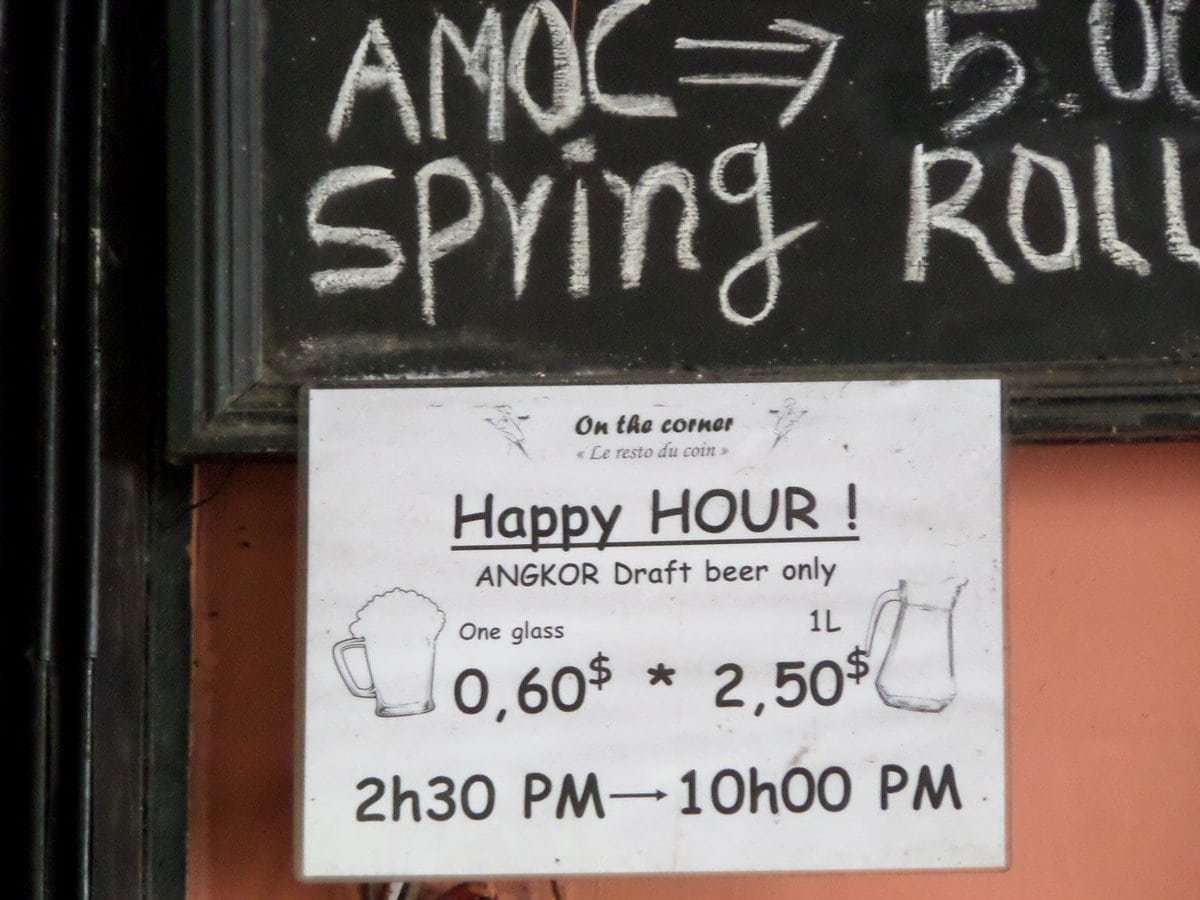 AMOC ⇒ 5.00
Spring ROLL
On the corner
« Le resto du coin »
Happy HOUR !
ANGKOR Draft beer only
One glass 1L
0,60$ * 2,50$
2h30 PM→10h00 PM